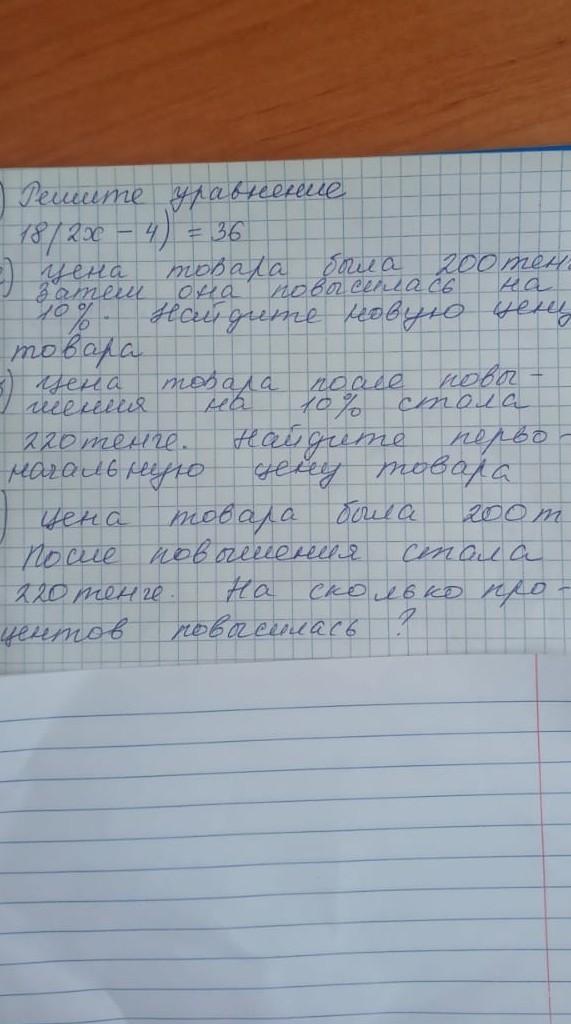 ) Решите уравнение
18(2x - 4) = 36
) цена товара была 200 тен
затем она повысилась на
10%. Найдите новую цену
товара
) цена товара после повы-
шения на 10% стала
220 тенге. Найдите перво-
начальную цену товара
) цена товара была 200 т
После повышения стала
220 тенге. На сколько про-
центов повысилась ?